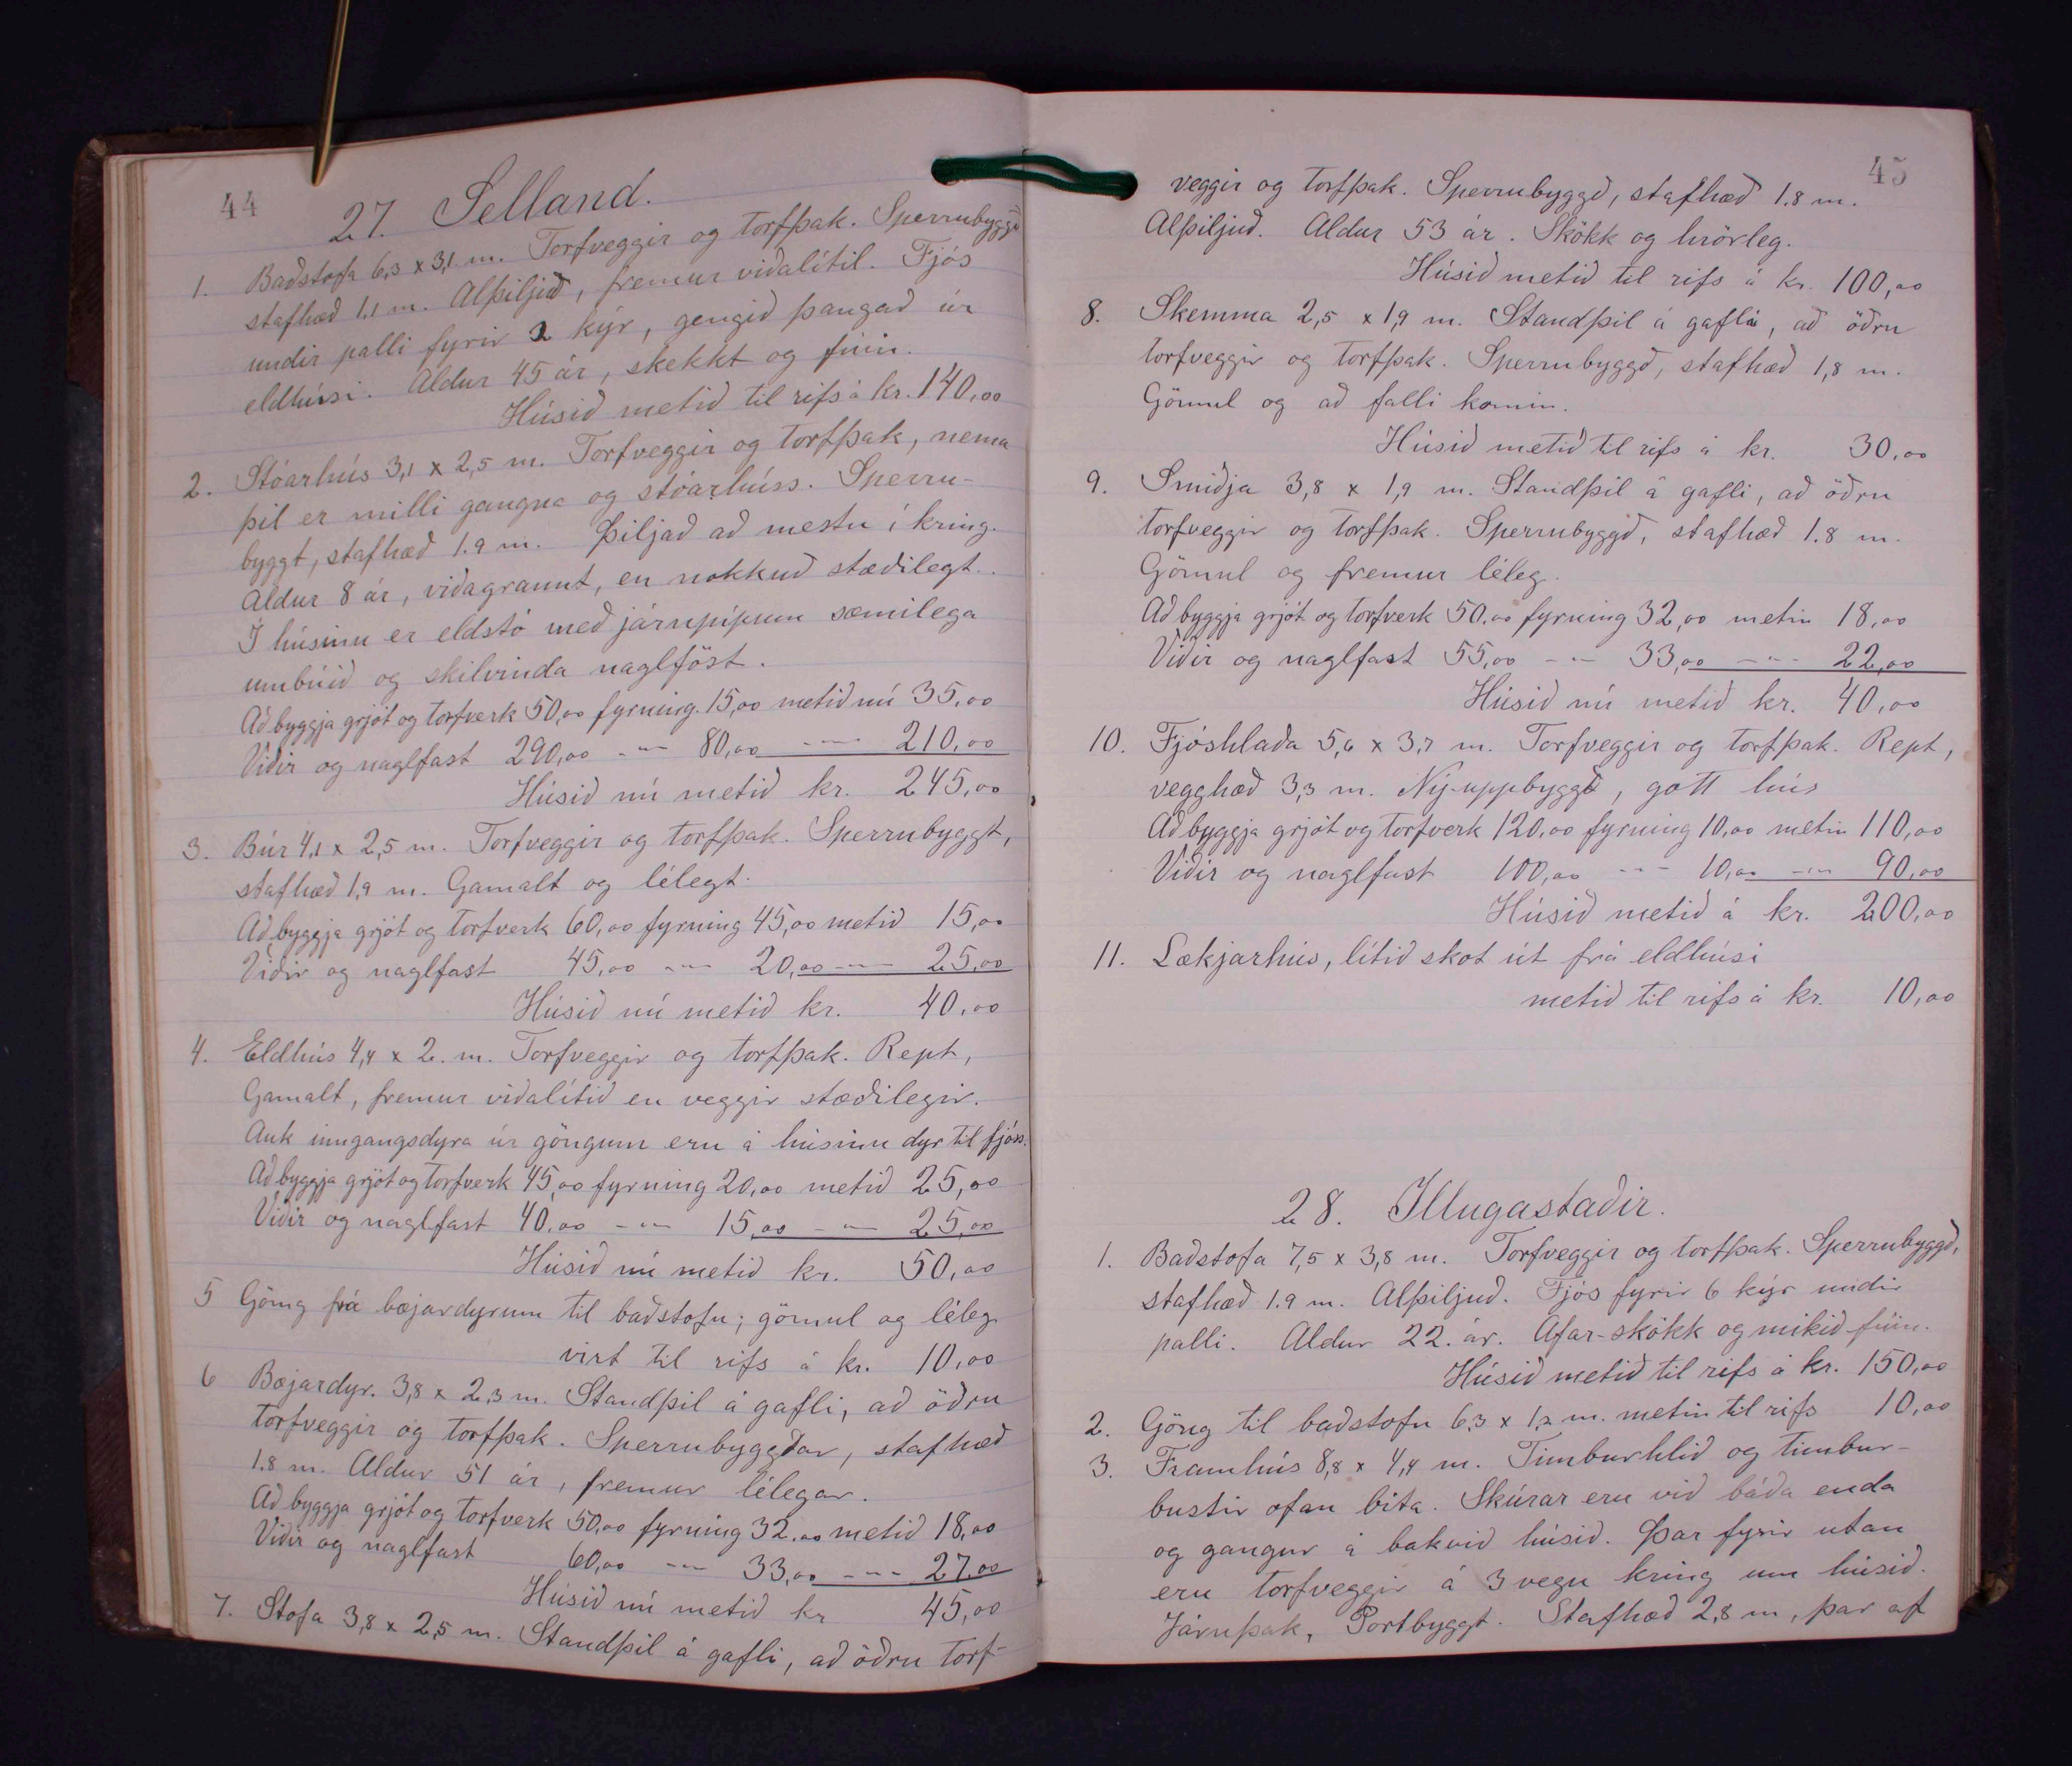 44
27. Selland.
1. Baðstofa 6,3 x 3,1 m. Torfveggir og torfþak. Sperrubyggð
stafhæð 1,1 m. Alþiljuð, fremur viðalítil. Fjós
undir palli fyrir 2 kýr, gengið þangað úr
eldhúsi. Aldur 45 ár, skekkt og fúin.
Húsið metið til rifs á kr. 140,00
2. Stóarhús 3,1 x 2,5 m. Torfveggir og torfþak, nema
þil er milli gangna og stóarhúss. Sperru-
byggt, stafhæð 1.9 m. Þiljað að mestu í kring.
Aldur 8 ár, viðagrannt, en nokkuð stæðilegt.
Í húsinu er eldstó með járnpípum sæmilega
umbúið og skilvinda naglföst.
Að byggja grjót og torfverk 50,00 fyrning 15,00 metið nú 35,00
Viðir og naglfast 290,00 -"- 80,00 -"- 210,00
Húsið nú metið kr. 245,00
3. Búr 4,1 x 2,5 m. Torfveggir og torfþak. Sperrubyggt,
stafhæð 1,9 m. Gamalt og lélegt.
Að byggja grjót og torfverk 60,00 fyrning 45,00 metið 15,00
Viðir og naglfast 45,00 -"- 20,00 -"- 25,00
Húsið nú metið kr. 40,00
4. Eldhús 4,4 x 2. m. Torfveggir og torfþak. Rept,
Gamalt, fremur viðalítið en veggir stæðilegir.
Auk inngangsdyra úr göngum eru á húsinu dyr til fjóss.
Að byggja grjót og torfverk 45,00 fyrning 20,00 metið 25,00
Viðir og naglfast 40,00 -"- 15,00 -"- 25,00
Húsið nú metið kr. 50,00
5 Göng frá bæjardyrum til baðstofu; gömul og léleg
virt til rifs á kr. 10,00
6 Bæjardyr. 3,8 x 2,3 m. Standþil á gafli, að öðru
torfveggir og torfþak. Sperrubyggðar, stafhæð
1.8 m. Aldur 51 ár, fremur lélegar.
Að byggja grjót og torfverk 50,00 fyrning 32,00 metið 18,00
Viðir og naglfast 60,00 -"- 33,00 -"- 27,00
Húsið nú metið kr 45,00
7. Stofa 3,8 x 2,5 m. Standþil á gafli, að öðru torf-
45
veggir og torfþak. Sperrubyggð, stafhæð 1.8 m.
Alþiljuð. Aldur 53 ár. Skökk og hrörleg.
Húsið metið til rifs á kr. 100,00
8. Skemma 2,5 x 1,9 m. Standþil á gafli, að öðru
torfveggir og torfþak. Sperrubyggð, stafhæð 1,8 m.
Gömul og að falli komin.
Húsið metið til rifs á kr. 30,00
9. Smiðja 3,8 x 1,9 m. Standþil á gafli, að öðru
torfveggir og torfþak. Sperrubyggð, stafhæð 1.8 m.
Gömul og fremur léleg.
Að byggja grjót og torfverk 50,00 fyrning 32,00 metin 18,00
Viðir og naglfast 55,00 -"- 33,00 -"- 22,00
Húsið nú metið kr. 40,00
10. Fjóshlaða 5,6 x 3,7 m. Torfveggir og torfþak. Rept,
vegghæð 3,3 m. Ný-uppbyggð, gott hús
Að byggja grjót og torfverk 120,00 fyrning 10,00 metin 110,00
Viðir og naglfast 100,00 -"- 10,00 -"- 90,00
Húsið metið á kr. 200,00
11. Lækjarhús, lítið skot út frá eldhúsi
metið til rifs á kr. 10,00
28. Illugastaðir.
1. Baðstofa 7,5 x 3,8 m. Torfveggir og torfþak. Sperrubyggð,
stafhæð 1.9 m. Alþiljuð. Fjós fyrir 6 kýr undir
palli. Aldur 22. ár. Afar-skökk og mikið fúin.
Húsið metið til rifs á kr. 150,00
2. Göng til baðstofu 6,3 x 1,2 m. metin til rifs 10,00
3. Framhús 8,8 x 4,4 m. Timburhlið og timbur-
bustir ofan bita. Skúrar eru við báða enda
og gangur á bakvið húsið. Þar fyrir utan
eru torfveggir á 3 vegu kring um húsið.
Járnþak, Portbyggt. Stafhæð 2,8 m, þar af